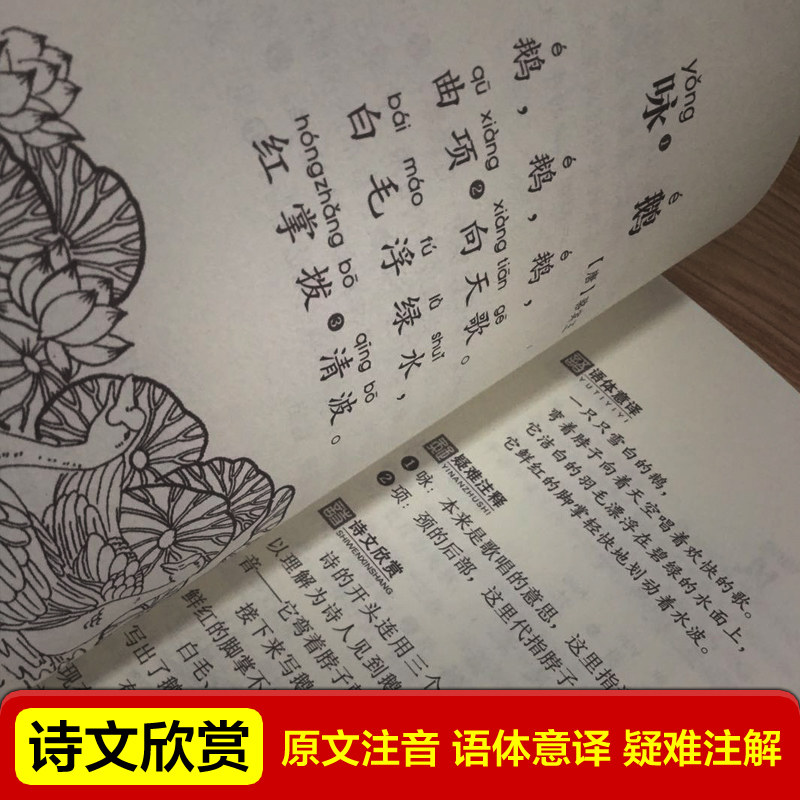 yǒng é
咏❶ 鹅
【唐】
é é é
鹅,鹅,鹅,
qū xiàng xiàng tiān gē
曲项❷向天歌。
bái máo fú lǜ shuǐ
白毛浮绿水,
hóngzhǎng bō qīng bō
红掌拨❸清波。
语体意译
YUTIYIYI
一只只雪白的鹅,
弯着脖子向着天空唱着欢快的歌。
它洁白的羽毛漂浮在碧绿的水面上,
它鲜红的脚掌轻快地划动着水波。
疑难注释
YINANZHUSHI
❶ 咏:本来是歌唱的意思,这里指
❷ 项:颈的后部,这里代指脖子
诗文欣赏
SHIWENXINSHANG
诗的开头连用三个
以理解为诗人见到鹅
音——它弯着脖子
接下来写鹅
鲜红的脚掌不
白毛、
写出了鹅
诗文欣赏
原文注音 语体意译 疑难注解